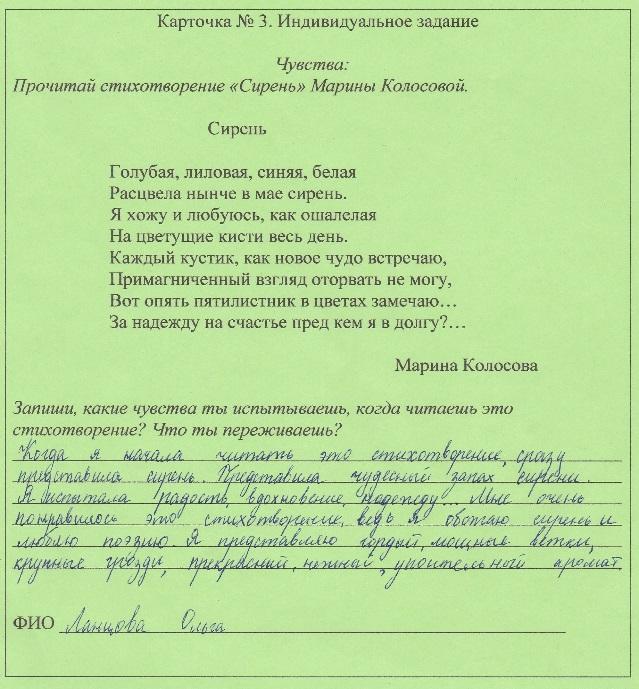 Карточка № 3. Индивидуальное задание
Чувства:
Прочитай стихотворение «Сирень» Марины Колосовой.
Сирень
Голубая, лиловая, синяя, белая
Расцвела нынче в мае сирень.
Я хожу и любуюсь, как ошалелая
На цветущие кисти весь день.
Каждый кустик, как новое чудо встречаю,
Примагниченный взгляд оторвать не могу,
Вот опять пятилистник в цветах замечаю…
За надежду на счастье пред кем я в долгу?…
Марина Колосова
Запиши, какие чувства ты испытываешь, когда читаешь это
стихотворение? Что ты переживаешь?
Когда я начала читать это стихотворение, сразу
представила сирень. Представила чудесный запах сирени.
Я испытала радость, вдохновение, надежду... Мне очень
понравилось это стихотворение, ведь я обожаю сирень и
люблю поэзию. Я представляю гордый, мощные ветки,
крупные грозди, прекрасный, нежный, упоительный аромат.
ФИО Ланцова Ольга